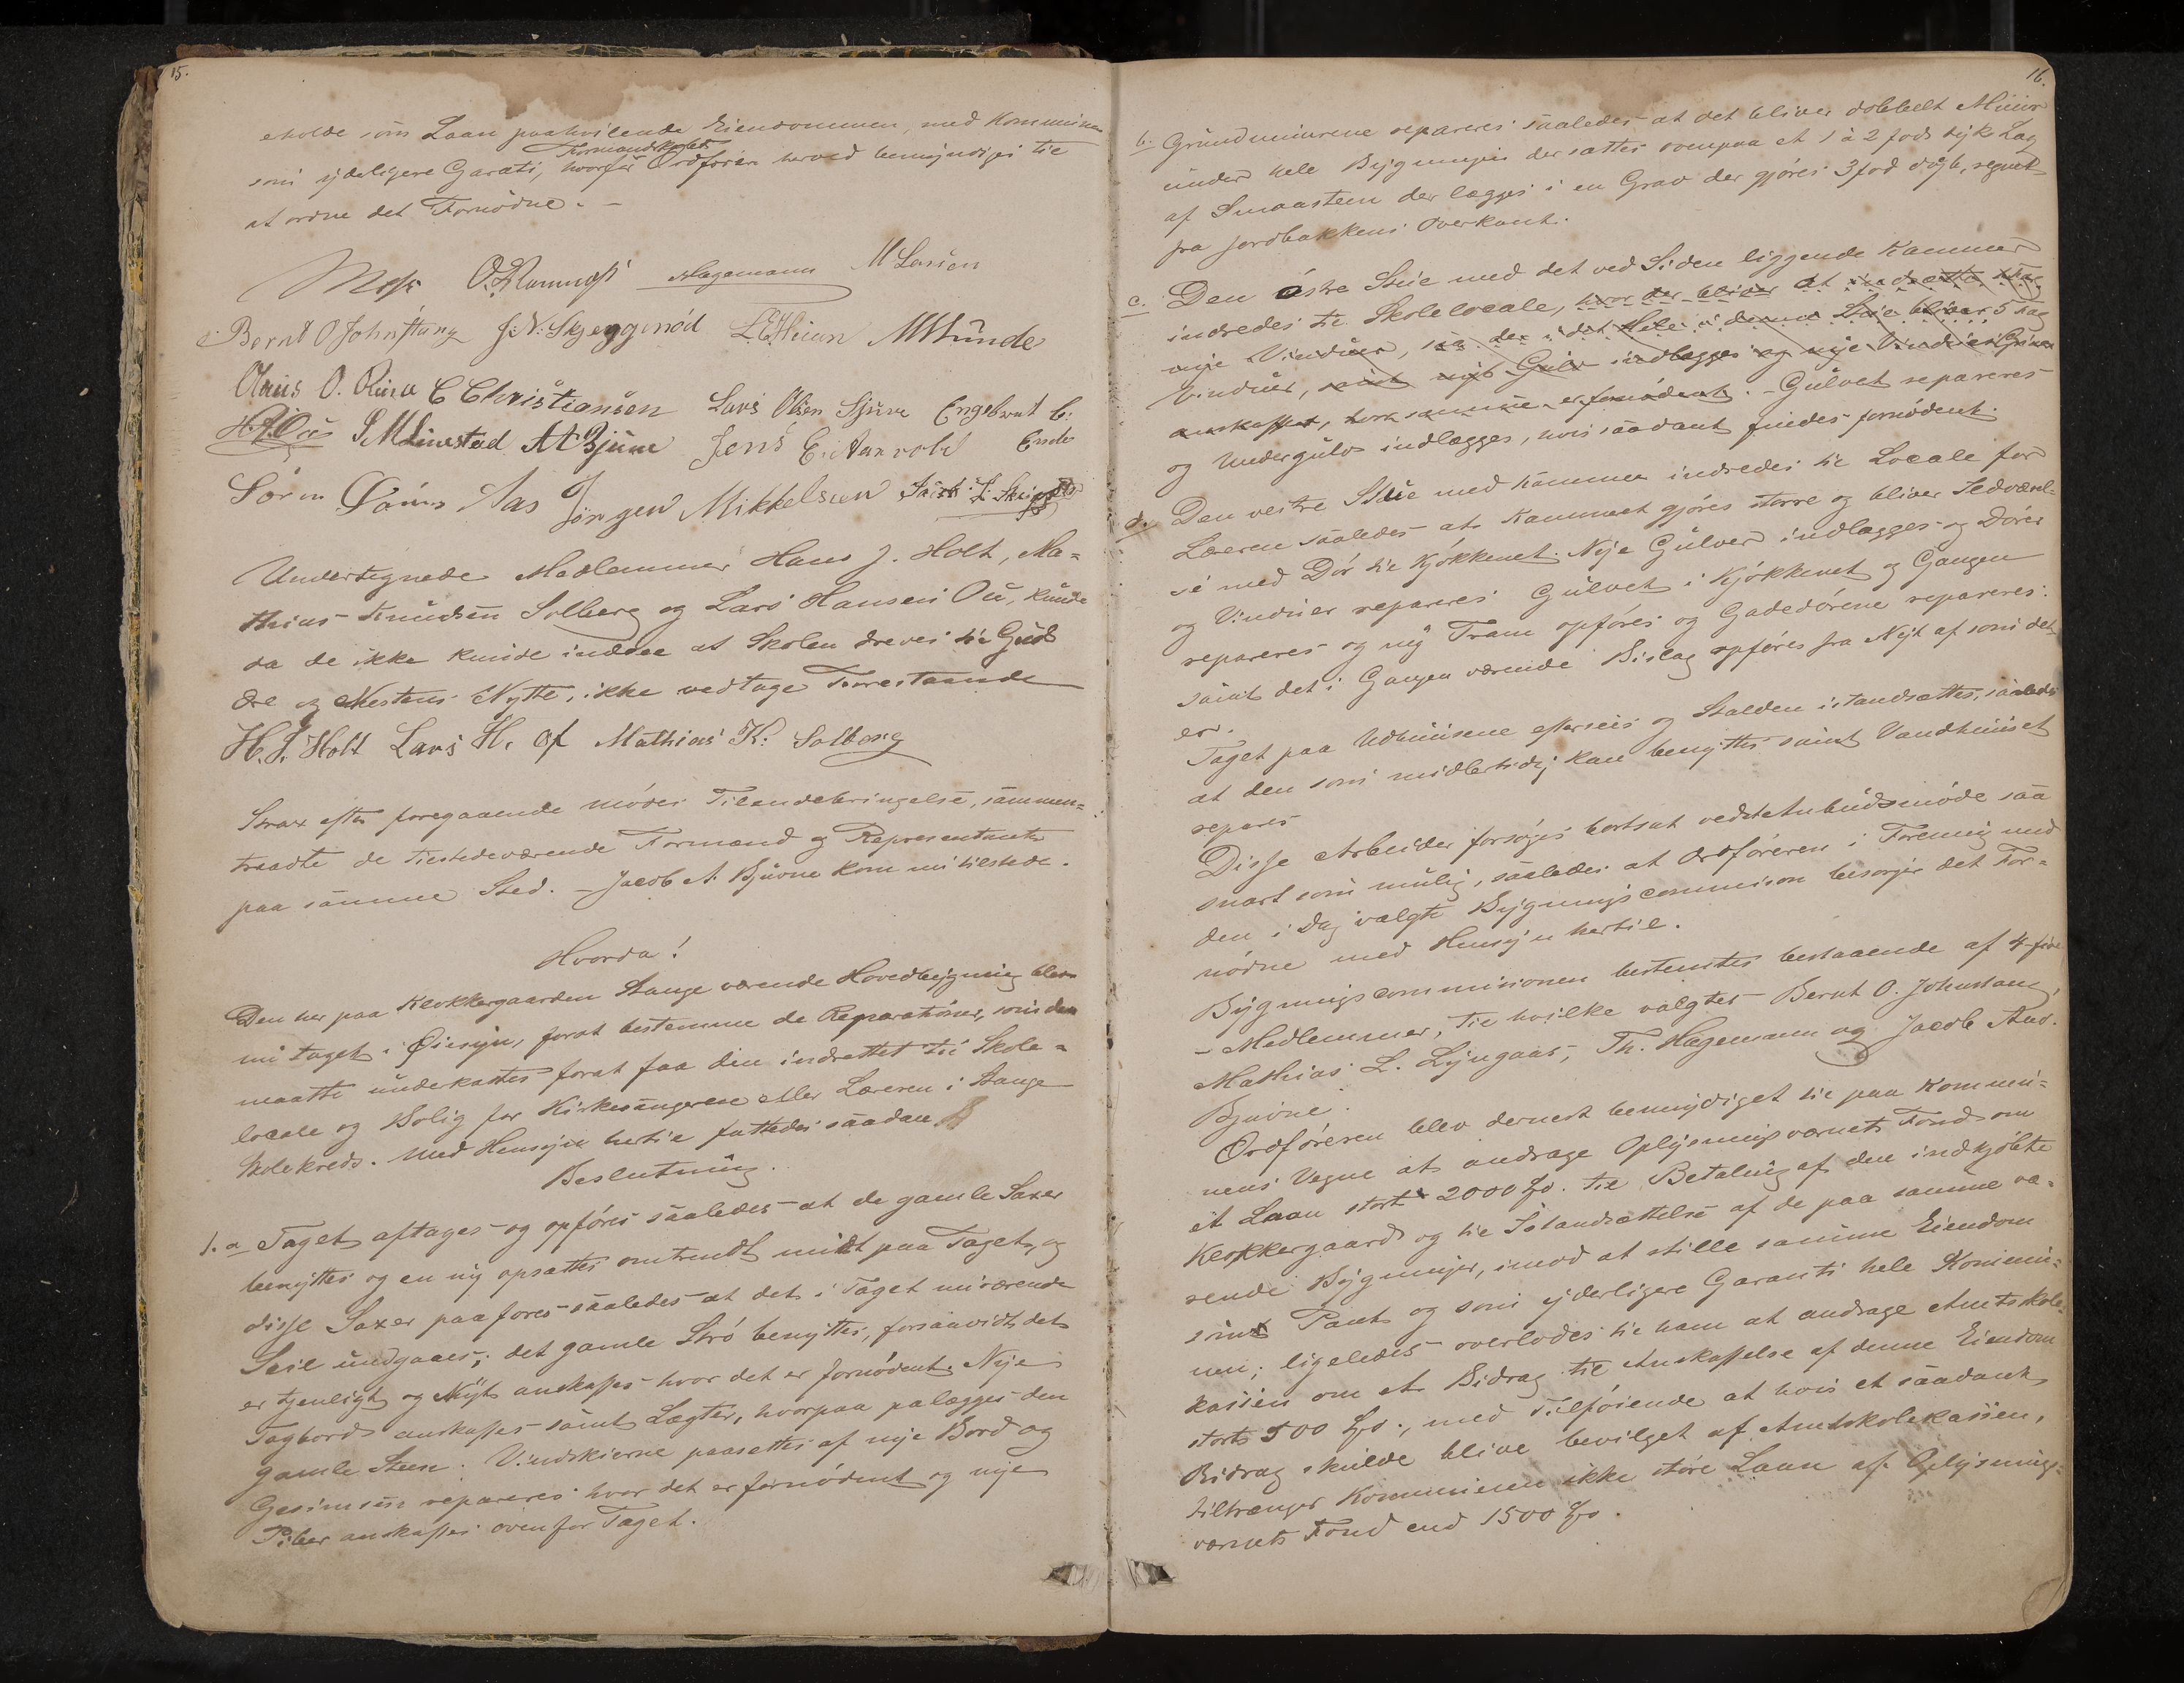 15.
eholde som Laan paahvilende Eiendommen, med Kommunen
som yderligere Garati, hvorfor Formandskabet Ordføren herved bemyndiges til
at ordne det Fornødne. -
O. Ramnæs Hagemann M Larsen
Bernt O Johnstang J. N. Skjeggerød L. E. Thuun M Stunde
Olaus O. Runa C Christiansen Lars Olsen Sjuve Engebret C.
S. M. Linnestad A A Bjune Jens E. Aanrold Ende
Søren Aas Jørgen Mikkelsen
Undertegnede Medlemmer Hans J. Holt, Ma=
thias Knudsen Solberg og Lars Hansen Ou, kunde
da de ikke kunde indsee at Skolen dreves til Guds
Ære og Nestens Nytte, ikke vedtage Forestaaende
H. J. Holt Lars H. Of Mathias K: Solberg
Strax efter foregaaende Mødes Tilendebringelse, sammen=
traadte de tilstedeværende Formænd og Representanter
paa samme Sted. - Jacob A. Bjuvne kom nu tilstede.
Hvorda!
Den her paa Klokkergaarden Stange værende Hovedbygning blev
nu taget i Øiesyn, forat bestemme de Reparationer, som den
maatte underkastes forat faa den indrettet til Skole=
locale og Bolig for Kirkesangeren eller Læreren i Stange
Skolekreds. Med Hensyn hertil fattedes saadan
Beslutning.
1. a Taget aftages og opføres saaledes at de gamle Saxer
benyttes og en ny opsættes omtrendt midt paa Taget, og
disse Saxer paafores saaledes at det i Taget nuværende
Seil undgaaes; det gamle Strø benyttes, forsaavidt det
er tjenligt og Nyt anskaffes hvor det er fornødent. Nye
Tagbord anskaffes samt Lægter, hvorpaa palægges den
gamle Steen. Vindskierne paasættes af nye Bord og
Gesimsen repareres hvor det er fornødent og nye
Piber anskaffes ovenfor Taget.
16.
b. Grundmurene repareres saaledes at det bliver dobbelt Muur
under hele Bygningen der sættes ovenpaa et 1 à 2 fods tyk Lag
af Smaasteen der lægges i en Grav der gjøres 3 fod dyb, regnet
fra Jordbakkens Overkant.
c. Den østre Stue med det ved Siden liggende Kammer
indredes til Skolelocale, hvor der bliver at indsætte 2 Fag
nye Vinduer, saa der i det Hele i denne Stue bliver 5 Fag
Vinduer, samt nyt Gulv indlægges og nye Vinduer
anskaffes, hvor samme er fornødent. - Gulvet repareres
og Undergulv indlægges, hvis saadant findes fornødent.
d. Den vestre Stue med Kammer indredes til Locale for
Læreren saaledes at Kammeret gjøres større og bliver Sedværel=
se med Dør til Kjøkkenet. Nye Gulver indlægges og Dører
og Vinduer repareres. Gulvet i Kjøkkenet og Gangen
repareres og ny Tram opføres og Gadedørene repareres.
samt det i Gangen værende Bislag opføres fra Nyt af som det
er.
Taget paa Udhuusene eftersees og Stalden istandsættes, saaledes
at den som midlertidig kan benyttes samt Vandhuuset
repares
Disse Arbeider forsøges bortsat ved et Anbudsmøde saa
snart som mulig, saaledes at Ordføreren i Forening med
den i Dag valgte Bygningscommision besørger det For=
nødne med Hensyn hertil.
Bygningscommisionen bestemtes bestaaende af 4 fire
- Medlemmer, til hvilke valgtes Bernt O. Johnstang,
Mathias L. Lyngaas, Th. Hagemann og Jacob And.
Bjuvne.
Ordføreren blev dernest bemyndiget til paa Kommu=
nens Vegne at andrage Oplysningsværnets Fond om
et Laan stort 2000 Kr. til Betaling af den indkjøbte
Klokkergaard og til Istandsættelse af de paa samme væ=
rende Bygninger, imod at stille samme Eiendom
som Pant og som yderligere Garanti hele Kommu=
nen; ligeledes overlodes til ham at andrage Amtskole=
kassen om et Bidrag til Anskaffelse af denne Eiendom
stort 500 Kr., med Tilføiende at hvis et saadant
Bidrag skulde blive bevilget af Amtskolekassen,
tiltrænger Kommunen ikke støre Laan af Oplysnings=
værnets Fond end 1500 Kr.